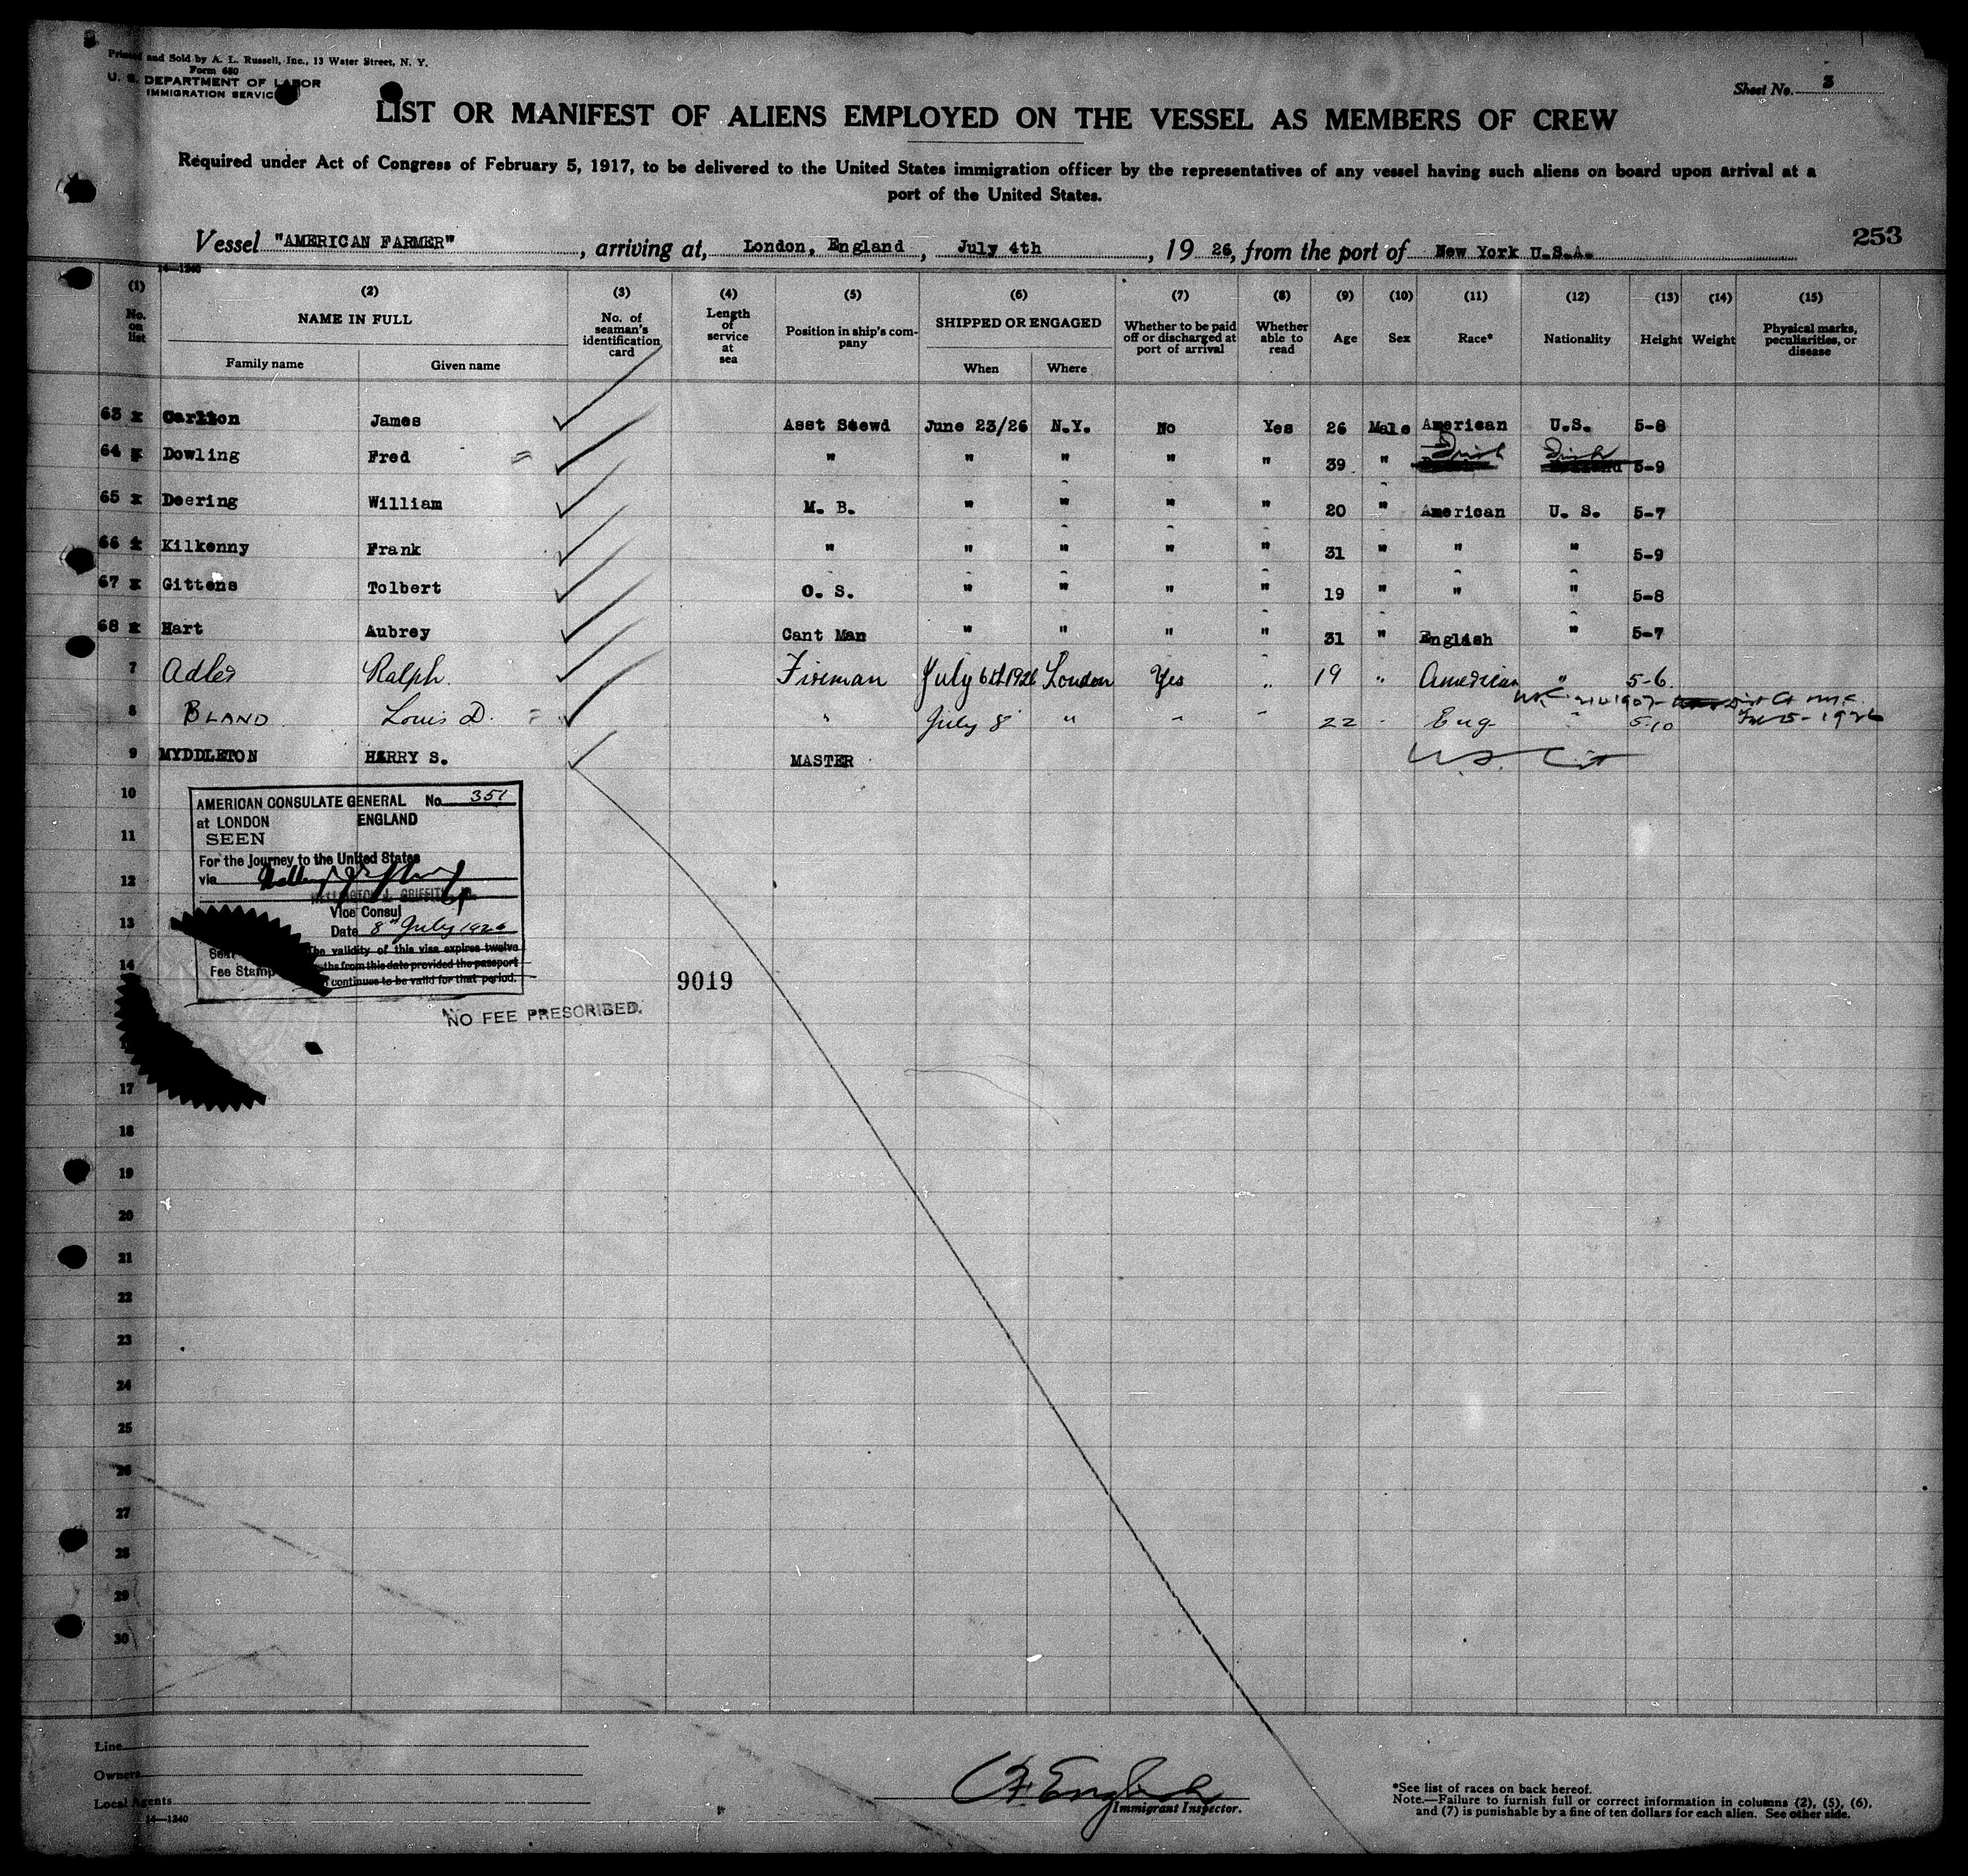 Printed and Sold by A. L. Russell, Inc., 13 Water Street, N. Y.
Form 680
U. S. DEPARTMENT OF LABOR
IMMIGRATION SERVICE
Sheet No. 3
LIST OR MANIFEST OF ALIENS EMPLOYED ON THE VESSEL AS MEMBERS OF CREW
Required under Act of Congress of February 5, 1917, to be delivered to the United States immigration officer by the representatives of any vessel having such aliens on board upon arrival at a
port of the United States.
Vessel "AMERICAN FARMER", arriving at, London, England, July 4th, 1926, from the port of New York U.S.A.
253
14—1240
(1) (2) (3) (4) (5) (6) (7) (8) (9) (10) (11) (12) (13) (14) (15)
No. on list NAME IN FULL Family name Given name No. of seaman's identification card Length of service at sea Position in ship's company SHIPPED OR ENGAGED When Where Whether to be paid off or discharged at port of arrival Whether able to read Age Sex Race* Nationality Height Weight Physical marks, peculiarities, or disease
63 x Carlton James Asst Stewd June 23/26 N.Y. No Yes 26 Male American U.S. 5-8
64 x Dowling Fred = " " " " " 39 " Irish Irish 5-9
65 x Deering William M. B. " " " " 20 " American U. S. 5-7
66 x Kilkenny Frank " " " " " 31 " " " 5-9
67 x Gittens Tolbert O. S. " " " " 19 " " " 5-8
68 x Hart Aubrey Cant Man " " " " 31 " English " 5-7
7 Adler Ralph. Fireman July 6th 1926 London Yes " 19 " American " 5-6.
8 BLAND Louis D. = " July 8 " " " 22 " Eng " 5-10 1926
9 MYDDLETON HARRY S. MASTER U.S. Cit
10
11
12
13
14
17
18
19
20
21
22
23
24
25
26
27
28
29
30
AMERICAN CONSULATE GENERAL No. 351
at LONDON ENGLAND
SEEN
For the Journey to the United States
via
GRIFFITH
Vice Consul
Date 8th July 1926
The validity of this visa expires twelve
ths from this date provided the passport
continues to be valid for that period.
Seal
Fee Stamp
NO FEE PRESCRIBED.
9019
Line
Owners
Local Agents
14—1240
English
Immigrant Inspector.
*See list of races on back hereof.
Note.—Failure to furnish full or correct information in columns (2), (5), (6),
and (7) is punishable by a fine of ten dollars for each alien. See other side.